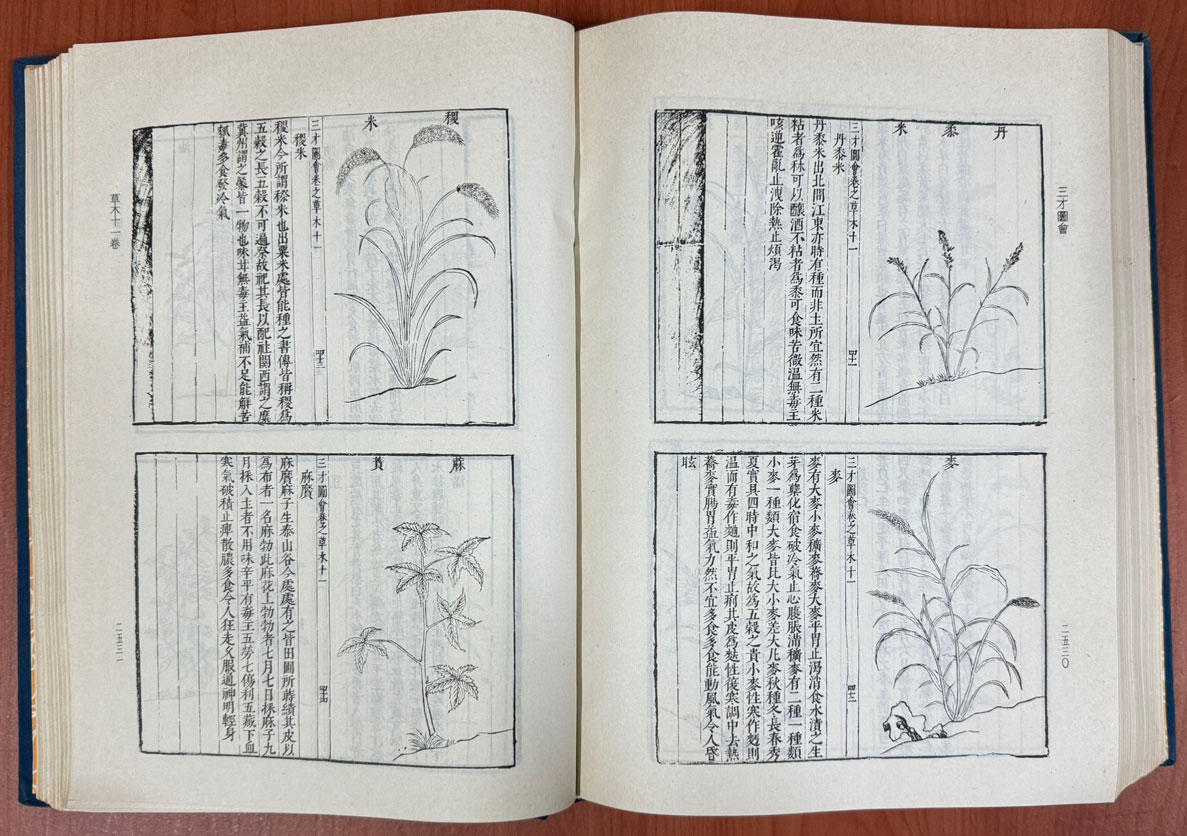 三才圖會
丹黍米
三才圖會卷之草木十一
四十一
丹黍米
丹黍米出北間江東亦時有種而非土所宜然有二種米
粘者為秫可以釀酒不粘者為黍可食味苦微溫無毒主
咳逆霍亂止洩除熱止煩渴
麥
三才圖會卷之草木十一
四十二
麥
麥有大麥小麥穬麥蕎麥大麥平胃止渴消食水漬之生
芽為櫱化宿食破冷氣止心腹脹滿穬麥有二種一種類
小麥一種類大麥皆比大小麥差大凡麥秋種冬長春秀
夏實具四時中和之氣故為五穀之貴小麥性寒作麪則
溫而有毒作麯則平胃止痢其皮為麩性復寒調中去熱
蕎麥實腸胃益氣力然不宜多食多食能動風氣令人昏
眩
二五三〇
稷米
三才圖會卷之草木十一
四十三
稷米
稷米今所謂穄米也出粟米處皆能種之書傳皆稱稷為
五穀之長五穀不可遍祭故祀其長以配社關西謂之穈
冀州謂之䅽皆一物也味甘無毒主益氣補不足能解苦
瓠毒多食發冷氣
麻蕡
三才圖會卷之草木十一
四十四
麻蕡
麻蕡麻子生泰山谷今處處有之皆田圃所蒔績其皮以
為布者一名麻勃此麻花上勃勃者七月七日採麻子九
月採入土者不用味辛平有毒主五勞七傷利五藏下血
寒氣破積止痺散膿多食令人狂走久服通神明輕身
草木十一卷
二五三一